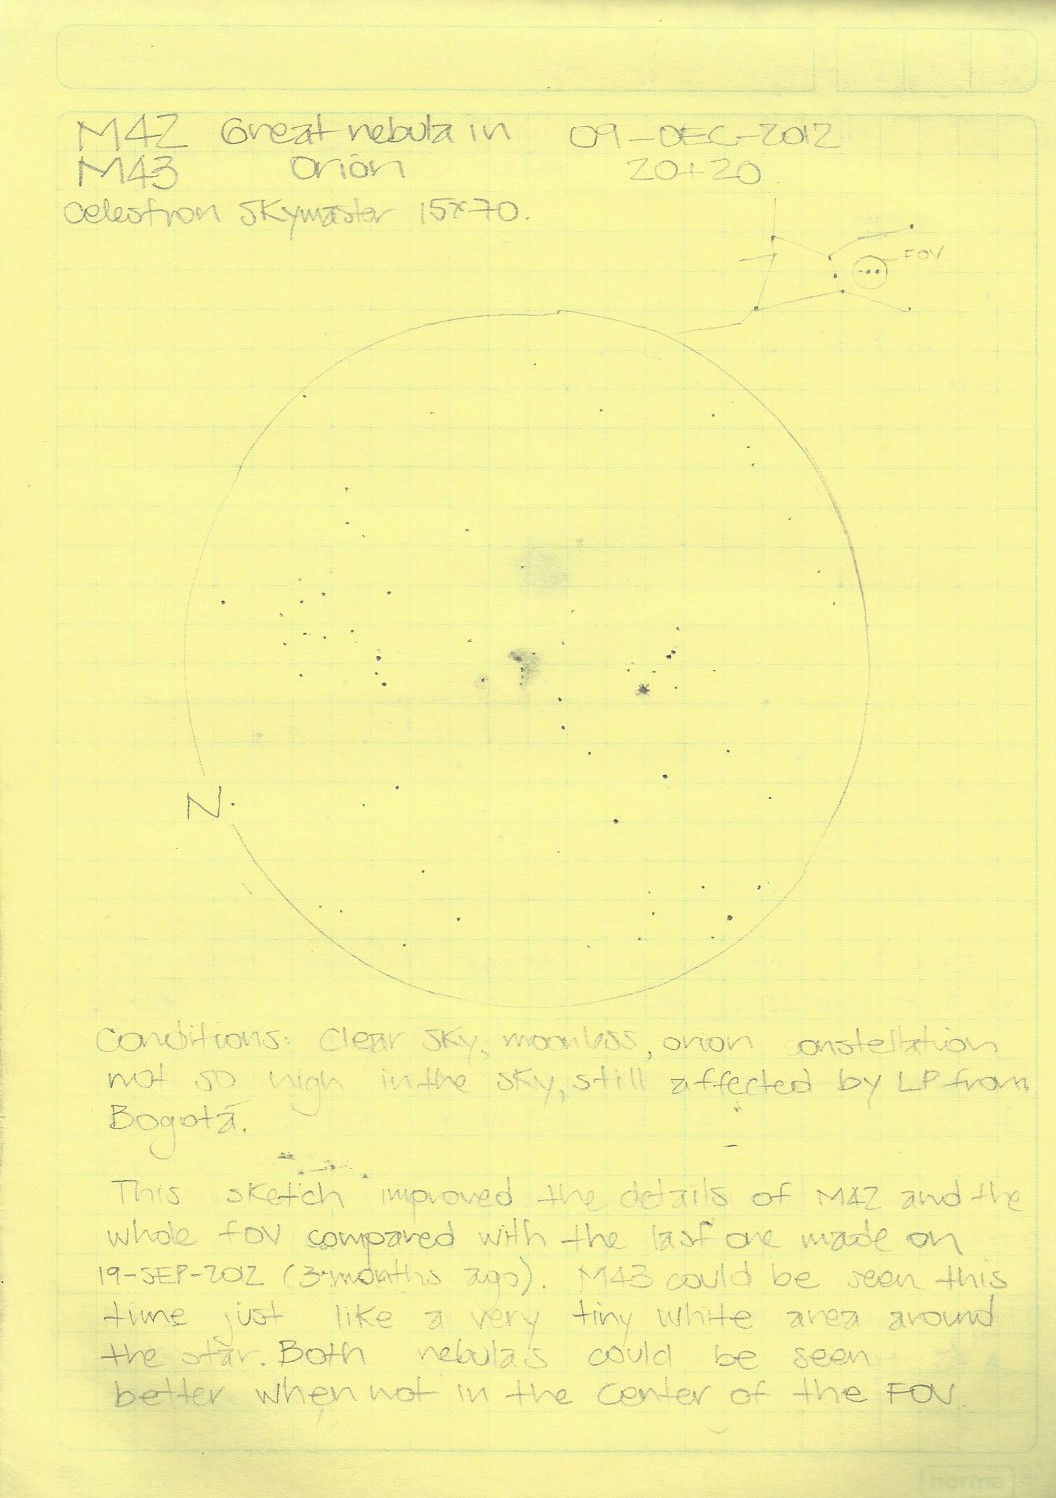 M42 Great nebula in 09-DEC-2012
M43 Orión 20+20
Celestron Skymaster 15x70.
FOV
N
Conditions: Clear sky, moonless, orion onstellation
not so high in the sky, still affected by LP from
Bogotá.
This sketch improved the details of M42 and the
whole fov compared with the last one made on
19-SEP-2012 (3 months ago). M43 could be seen this
time just like a very tiny white area around
the star. Both nebulas could be seen
better when not in the center of the FOV.